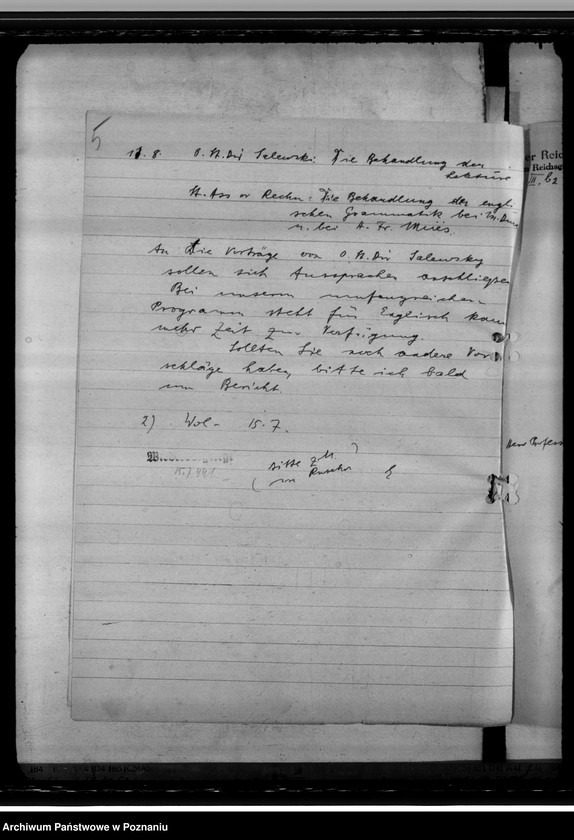 5
13. 8. O.St.Dir Salewski: Die Behandlung der
Lektüre
St. Ass Die Behandlung der engli
schen Grammatik bei
u. bei
An Die Vorträge von O.St.Dir Salewsky
sollen sich Aussprachen anschließen
Bei unserm umfangreichen
Programm steht für Englisch kaum
mehr Zeit zur Verfügung.
Sollten Sie noch andere Vor
schläge haben, bitte ich bald
um Bericht.
2) Wvl. 15.7.
15.7.
bitte
er Reic
Reichsg
III. b2
Herr Profess
Archiwum Państwowe w Poznaniu